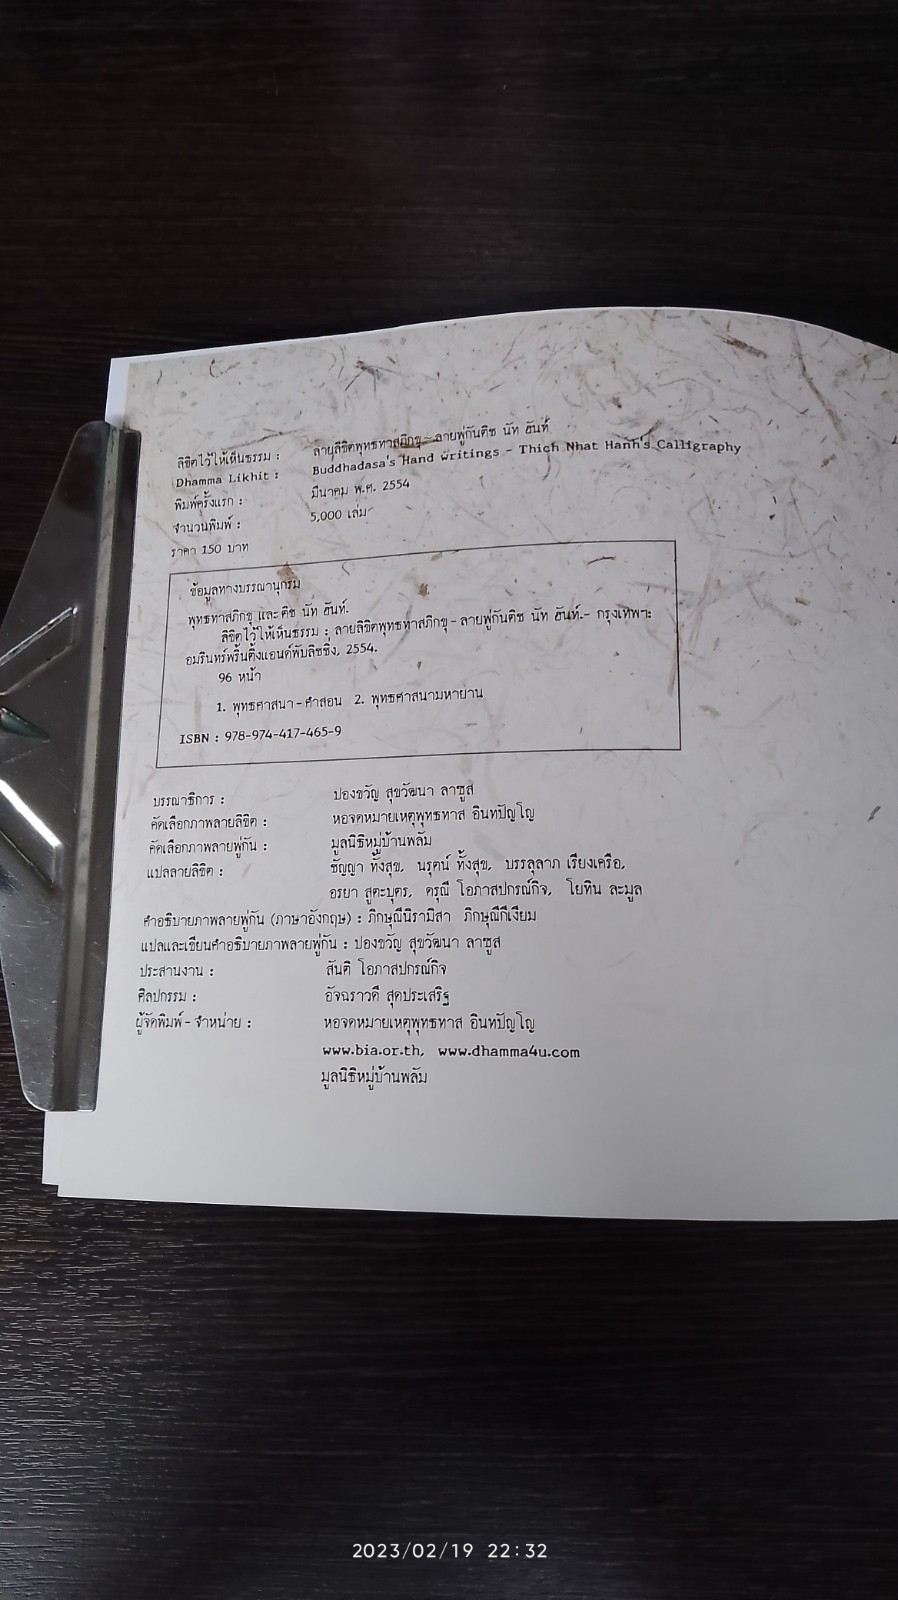 ลิขิตไว้ให้เห็นธรรม : ลายลิขิตพุทธทาสภิกขุ - ลายพู่กันติช นัท ฮันห์
Dhamma Likhit : Buddhadasa's Hand Writings - Thich Nhat Hanh's Calligraphy
พิมพ์ครั้งแรก : มีนาคม พ.ศ. 2554
จำนวนพิมพ์ : 5,000 เล่ม
ราคา 150 บาท
ข้อมูลทางบรรณานุกรม
พุทธทาสภิกขุ และ ติช นัท ฮันห์.
ลิขิตไว้ให้เห็นธรรม : ลายลิขิตพุทธทาสภิกขุ - ลายพู่กันติช นัท ฮันห์.- กรุงเทพฯ:
อมรินทร์พริ้นติ้งแอนด์พับลิชชิ่ง, 2554.
96 หน้า
1. พุทธศาสนา - คำสอน 2. พุทธศาสนามหายาน
ISBN : 978-974-417-465-9
บรรณาธิการ : ปองขวัญ สุขวัฒนา ลาซูส
คัดเลือกภาพลายลิขิต : หอจดหมายเหตุพุทธทาส อินทปัญโญ
คัดเลือกภาพลายพู่กัน : มูลนิธิหมู่บ้านพลัม
แปลลายลิขิต : ธัญญา ทั้งสุข, นรุตน์ ทั้งสุข, บรรลุลาภ เรียงเครือ,
อรยา สูตะบุตร, ดรุณี โอภาสปกรณ์กิจ, โยทิน ละมูล
คำอธิบายภาพลายพู่กัน (ภาษาอังกฤษ) : ภิกษุณีนิรามิสา ภิกษุณีกีเงียม
แปลและเขียนคำอธิบายภาพลายพู่กัน : ปองขวัญ สุขวัฒนา ลาซูส
ประสานงาน : สันติ โอภาสปกรณ์กิจ
ศิลปกรรม : อัจฉราวดี สุดประเสริฐ
ผู้จัดพิมพ์ - จำหน่าย : หอจดหมายเหตุพุทธทาส อินทปัญโญ
www.bia.or.th, www.dhamma4u.com
มูลนิธิหมู่บ้านพลัม
2023/02/19 22:32